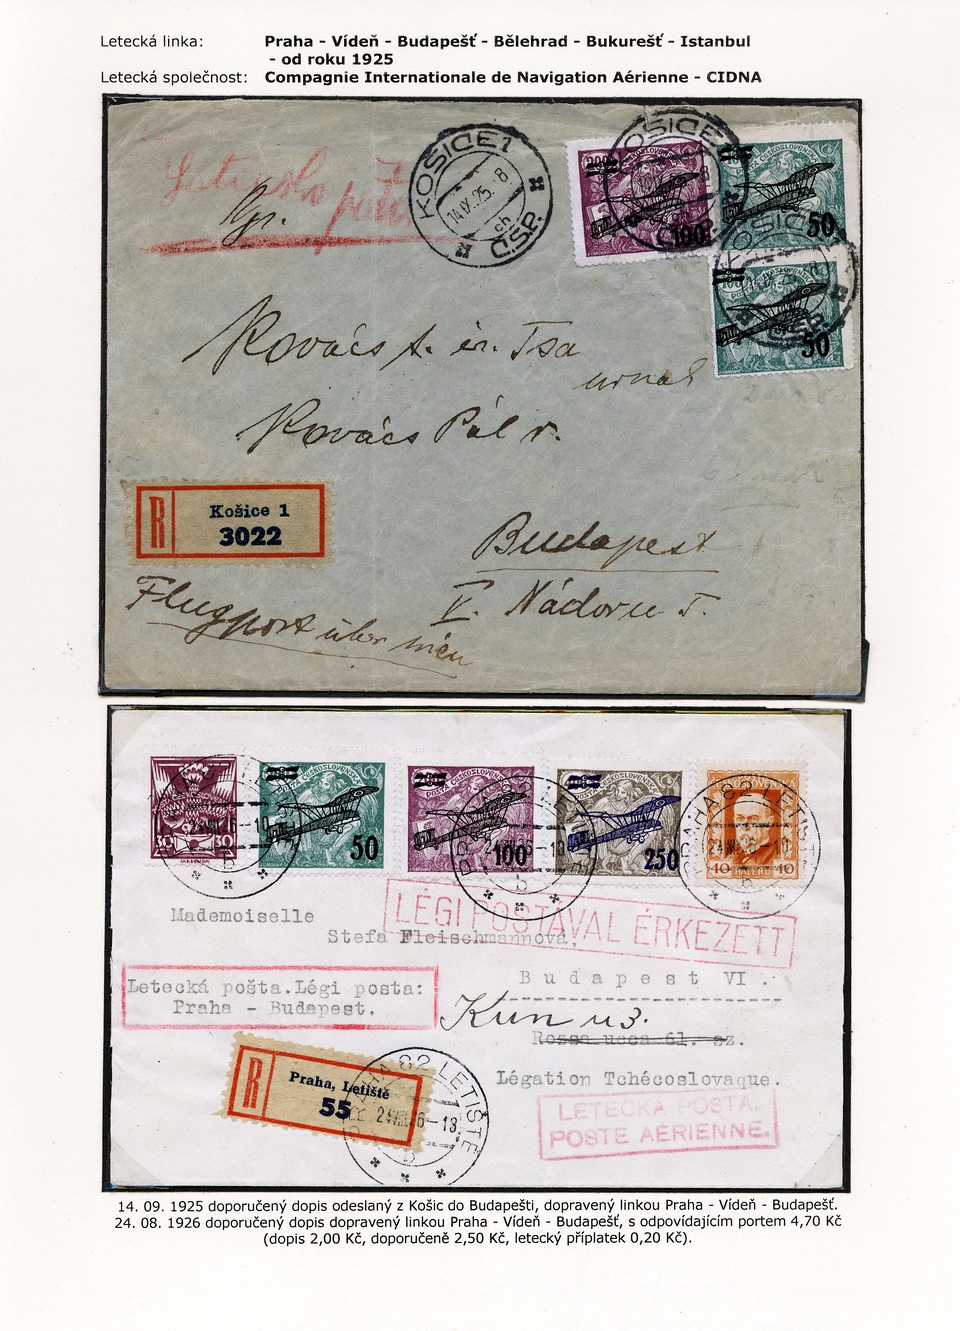 Letecká linka: Praha - Vídeň - Budapešť - Bělehrad - Bukurešť - Istanbul
- od roku 1925
Letecká společnost: Compagnie Internationale de Navigation Aérienne - CIDNA
Letecká pošta
KOŠICE 1
14.IX.25.-8
ch
Č.S.P.
100
50
50
Kovács
Kovács Pál
R
Košice 1
3022
Budapest
V. Nádor u
Flugpost über
50
100
250
40 HALÉŘŮ 40
PRAHA 82 LETIŠTĚ
24.VIII.26-18
b
LÉGI POSTÁVAL ÉRKEZETT
Mademoiselle
Stefa Fleischmannová,
Letecká pošta.Légi posta:
Praha - Budapest.
Budapest VI.
Kun u 3.
Rozsa ucca 61. sz.
Légation Tchécoslovaque.
R
Praha, Letiště
55
PRAHA 82 LETIŠTĚ
24.VIII.26-18
b
LETECKÁ POŠTA.
POSTE AÉRIENNE.
14. 09. 1925 doporučený dopis odeslaný z Košic do Budapešti, dopravený linkou Praha - Vídeň - Budapešť.
24. 08. 1926 doporučený dopis dopravený linkou Praha - Vídeň - Budapešť, s odpovídajícím portem 4,70 Kč
(dopis 2,00 Kč, doporučeně 2,50 Kč, letecký příplatek 0,20 Kč).